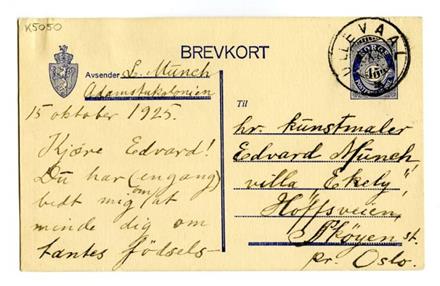 K5050
BREVKORT
ULLEVAAL
NORGE
15
Avsender L. Munch
Adamstukolonien
15 oktober 1925.
Kjøre Edvard!
Du har (engang)
bedt mig om at
minde dig om
tantes fødsels-
Til
hr. kunstmaler
Edvard Munch
villa "Ekely",
Hoffsveien,
Skøyen st.
pr. Oslo.